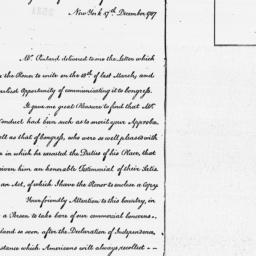 New York 17th December 1787
Mr. Pintard delivered to me the Letter which
the Honor to write on the 18th of last March, and
earliest Opportunity of communicating it to Congress.
It gave me great Pleasure to find that Mr.
Conduct had been such as to merit your Approba
well as that of Congress, who were so well pleased with
in which he executed the Duties of his Place, that
given him an honorable Testimonial of their Satis
an Act, of which I have the Honor to enclose a Copy
Your friendly Attention to this Country, in
a Person to take Care of our commercial Concerns,
and so soon after the Declaration of Independence,
stance which Americans will always recollect